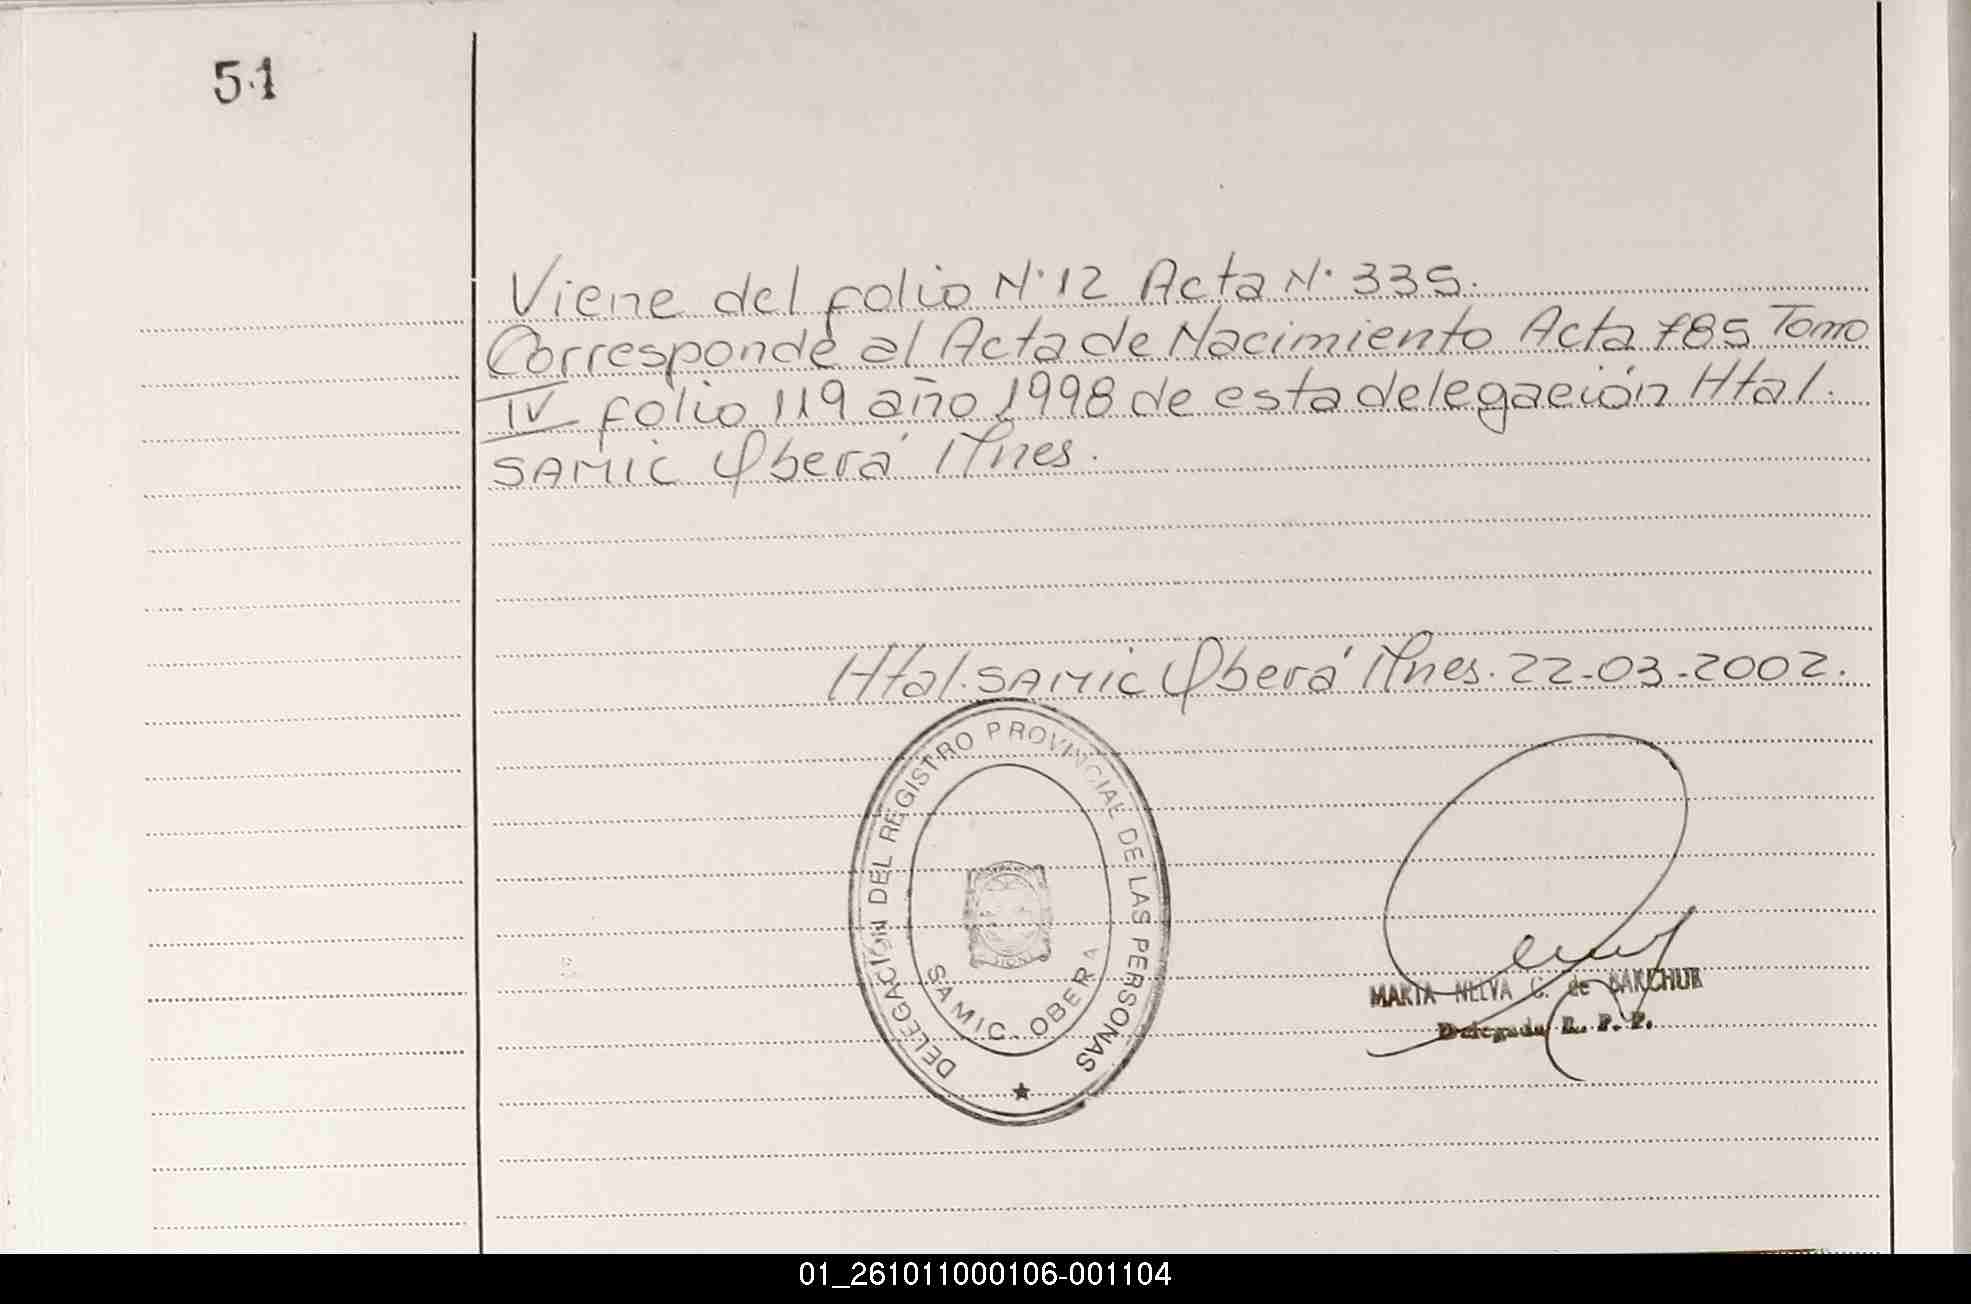 51
Viene del folio N° 12 Acta N° 335.
Corresponde al Acta de Nacimiento Acta 785 Tomo
IV folio 119 año 1998 de esta delegación Htal.
SAMIC Oberá Mnes.
Htal. SAMIC Oberá Mnes. 22-03-2002.
DELEGACION DEL REGISTRO PROVINCIAL DE LAS PERSONAS
SAMIC. OBERA
MARIA NELVA G. de
Delegada R. P. P.
01_261011000106-001104